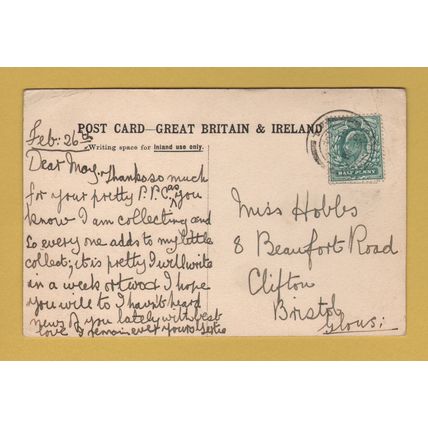 POST CARD—GREAT BRITAIN & IRELAND
Writing space for inland use only.
Feb: 26th
Dear May, Thanks so much
for your pretty P.P.C. as you
know I am collecting and
so every one adds to my little
collect; it is pretty I will write
in a week or two & I hope
you will to I havn't heard
news of you lately with best
love I remain ever yours
Miss Hobbs
8 Beaufort Road
Clifton
Bristol
Glous:
HALF PENNY